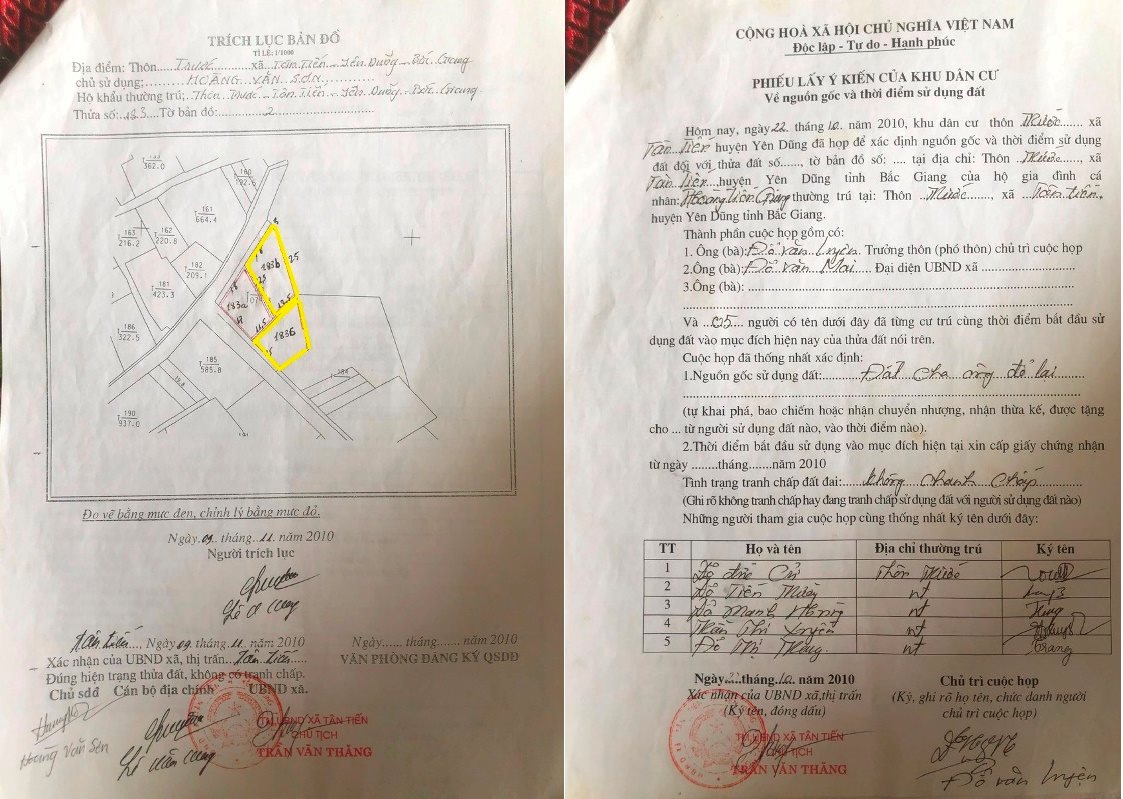 TRÍCH LỤC BẢN ĐỒ
TỈ LỆ: 1/1000
Địa điểm: Thôn....Thước.......xã..Tân Tiến - Yên Dũng - Bắc Giang
chủ sử dụng;......HOÀNG VĂN SƠN............
Hộ khẩu thường trú;..Thôn Thước - Tân Tiến - Yên Dũng - Bắc Giang
Thửa số:.183....Tờ bản đồ:..........2..............................
133
362.0
160
192.5
161
664.4
163
216.2
162
220.8
182
209.1
181
423.3
183b
25
25
183a
18
13.5
11.5
183b
186
322.5
185
585.8
184
190
937.0
Đo vẽ bằng mực đen, chỉnh lý bằng mực đỏ.
Ngày.09.. tháng..11.. năm 2010
Người trích lục
Tân Tiến..., Ngày 09. tháng..11.. năm 2010
Xác nhận của UBND xã, thị trấn...Tân Tiến....
Đúng hiện trạng thửa đất, không có tranh chấp.
Chủ sdđ Cán bộ địa chính UBND xã.
Ngày...... tháng....... năm 2010
VĂN PHÒNG ĐĂNG KÝ QSDĐ
TM UBND XÃ TÂN TIẾN
CHỦ TỊCH
TRẦN VĂN THẮNG
Hoàng Văn Sơn
CỘNG HOÀ XÃ HỘI CHỦ NGHĨA VIỆT NAM
Độc lập - Tự do - Hạnh phúc
PHIẾU LẤY Ý KIẾN CỦA KHU DÂN CƯ
Về nguồn gốc và thời điểm sử dụng đất
Hôm nay, ngày 22. tháng .10. năm 2010, khu dân cư thôn Thước....... xã
Tân Tiến huyện Yên Dũng đã họp để xác định nguồn gốc và thời điểm sử dụng
đất đối với thửa đất số......, tờ bản đồ số: .... tại địa chỉ: Thôn ..Thước......, xã
Tân Tiến....,huyện Yên Dũng tỉnh Bắc Giang của hộ gia đình cá
nhân: Hoàng thường trú tại: Thôn ..Thước......., xã ..Tân Tiến.,
huyện Yên Dũng tỉnh Bắc Giang.
Thành phần cuộc họp gồm có:
1. Ông (bà): Đỗ Văn Luyện. Trưởng thôn (phó thôn) chủ trì cuộc họp
2.Ông (bà): Đỗ Văn Mai.... Đại diện UBND xã ..........................
3.Ông (bà): .................................................................
Và ...05.... người có tên dưới đây đã từng cư trú cùng thời điểm bắt đầu sử
dụng đất vào mục đích hiện nay của thửa đất nói trên.
Cuộc họp đã thống nhất xác định:
1.Nguồn gốc sử dụng đất:...........Đất cha ông để lại..........
(tự khai phá, bao chiếm hoặc nhận chuyển nhượng, nhận thừa kế, được tặng
cho ... từ người sử dụng đất nào, vào thời điểm nào).
2.Thời điểm bắt đầu sử dụng vào mục đích hiện tại xin cấp giấy chứng nhận
từ ngày ........tháng.......năm 2010
Tình trạng tranh chấp đất đai:......không chanh chấp............
(Ghi rõ không tranh chấp hay đang tranh chấp sử dụng đất với người sử dụng đất nào)
Những người tham gia cuộc họp cùng thống nhất ký tên dưới đây:
TT Họ và tên Địa chỉ thường trú Ký tên
1 Thôn Thước
2 Đỗ Tiến nt
3 Đỗ Mạnh Hồng nt Hồng
4 Trần Thị Xuyên nt
5 Đỗ Thị Trang nt Trang
Ngày.....tháng.10. năm 2010
Xác nhận của UBND xã,thị trấn
(Ký tên, đóng dấu)
Chủ trì cuộc họp
(Ký, ghi rõ họ tên, chức danh người
chủ trì cuộc họp)
TM UBND XÃ TÂN TIẾN
CHỦ TỊCH
TRẦN VĂN THẮNG
Đỗ Văn Luyện